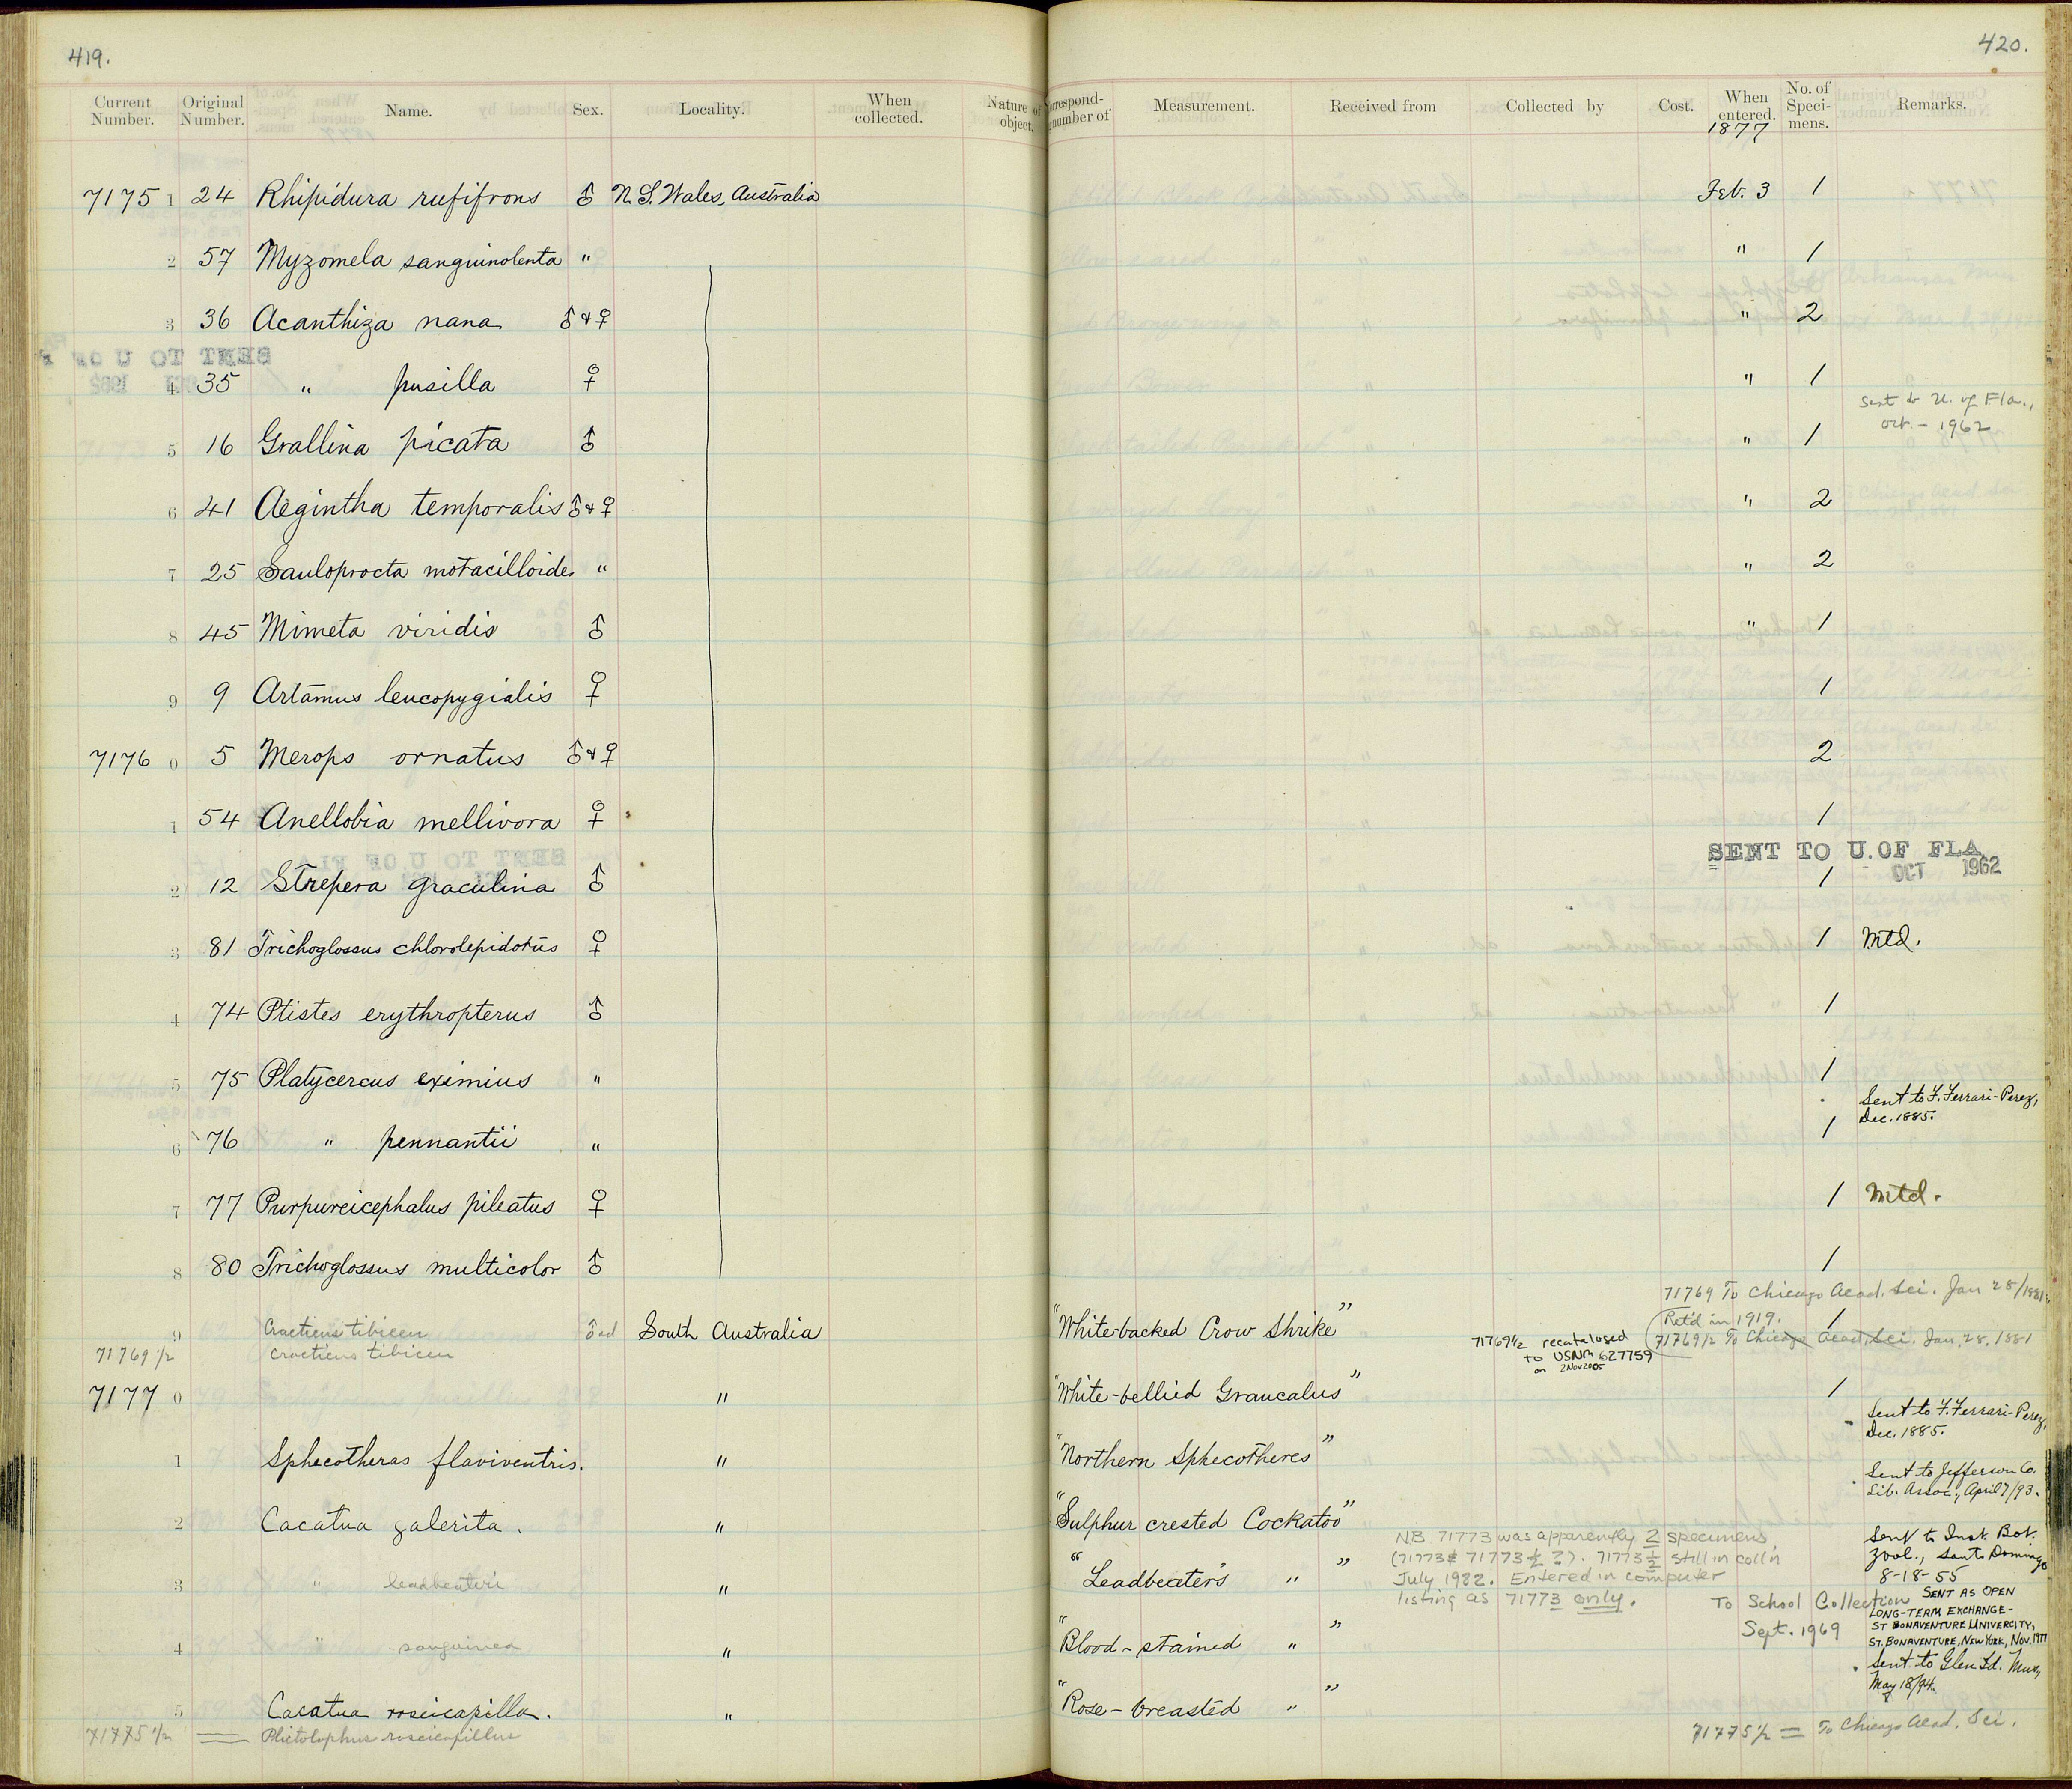 419.
420.
Current Number. Original Number. Name. Sex. Locality. When collected. Nature of object. Correspond- number of Measurement. Received from Collected by Cost. When entered. No. of Speci- mens. Remarks.
1877
7175 1 24 Rhipidura rufifrons ♂ N. S. Wales, Australia Feb. 3 1
2 57 Myzomela sanguinolenta " " 1
3 36 Acanthiza nana ♂ & ♀ " 2
4 35 " pusilla ♀ " 1
Sent to U. of Fla.,
Oct. - 1962
5 16 Grallina picata ♂ " 1
6 41 Aegintha temporalis ♂ & ♀ " 2
7 25 Sauloprocta motacilloides " " 2
8 45 Mimeta viridis ♂ " 1
9 9 Artamus leucopygialis ♀ 1
7176 0 5 Merops ornatus ♂ & ♀ 2
1 54 Anellobia mellivora ♀ 1
SENT TO U. OF FLA
OCT 1962
2 12 Strepera graculina ♂ 1
3 81 Trichoglossus chlorolepidotus ♀ 1 Mtd.
4 74 Ptistes erythropterus ♂ 1
5 75 Platycercus eximius " 1
Sent to F. Ferrari-Perez,
Dec. 1885.
6 76 " pennantii " 1
7 77 Purpureicephalus pileatus ♀ 1 Mtd.
8 80 Trichoglossus multicolor ♂ 1
71769 To Chicago Acad. Sci. Jan 28/1881
Ret'd in 1919.
9 Cracticus tibicen ♂ ad South Australia "White-backed Crow Shrike" 1
71769 1/2 Cracticus tibicen
71769 1/2 recatalosed
to USNM 627759
on 2 Nov 2005
71769 1/2 To Chicago Acad. Sci. Jan. 28. 1881
7177 0 " "White-bellied Graucalus" 1
Sent to F. Ferrari-Perez,
Dec. 1885.
1 Sphecotheras flaviventris. " "Northern Sphecotheres"
Sent to Jefferson Co.
Lib. Assoc., April 7/93.
2 Cacatua galerita. " "Sulphur crested Cockatoo"
Sent to Inst. Bot.
Zool., Santo Domingo
8-18-55
3 " leadbeateri " "Leadbeater's " "
NB 71773 was apparently 2 specimens
(71773 & 71773 1/2 ?). 71773 1/2 still in coll'n
July 1982. Entered in computer
listing as 71773 only.
To School Collection
Sept. 1969
SENT AS OPEN
LONG-TERM EXCHANGE-
ST BONAVENTURE UNIVERCITY,
ST. BONAVENTURE, NEW YORK, NOV. 1977
4 " sanguinea " "Blood-stained " "
Sent to Glen Id. Mus,
May 18/94.
5 Cacatua roseicapilla. " "Rose-breasted " "
71775 1/2 Plictolophus roseicapillus
71775 1/2 = To Chicago Acad. Sci.